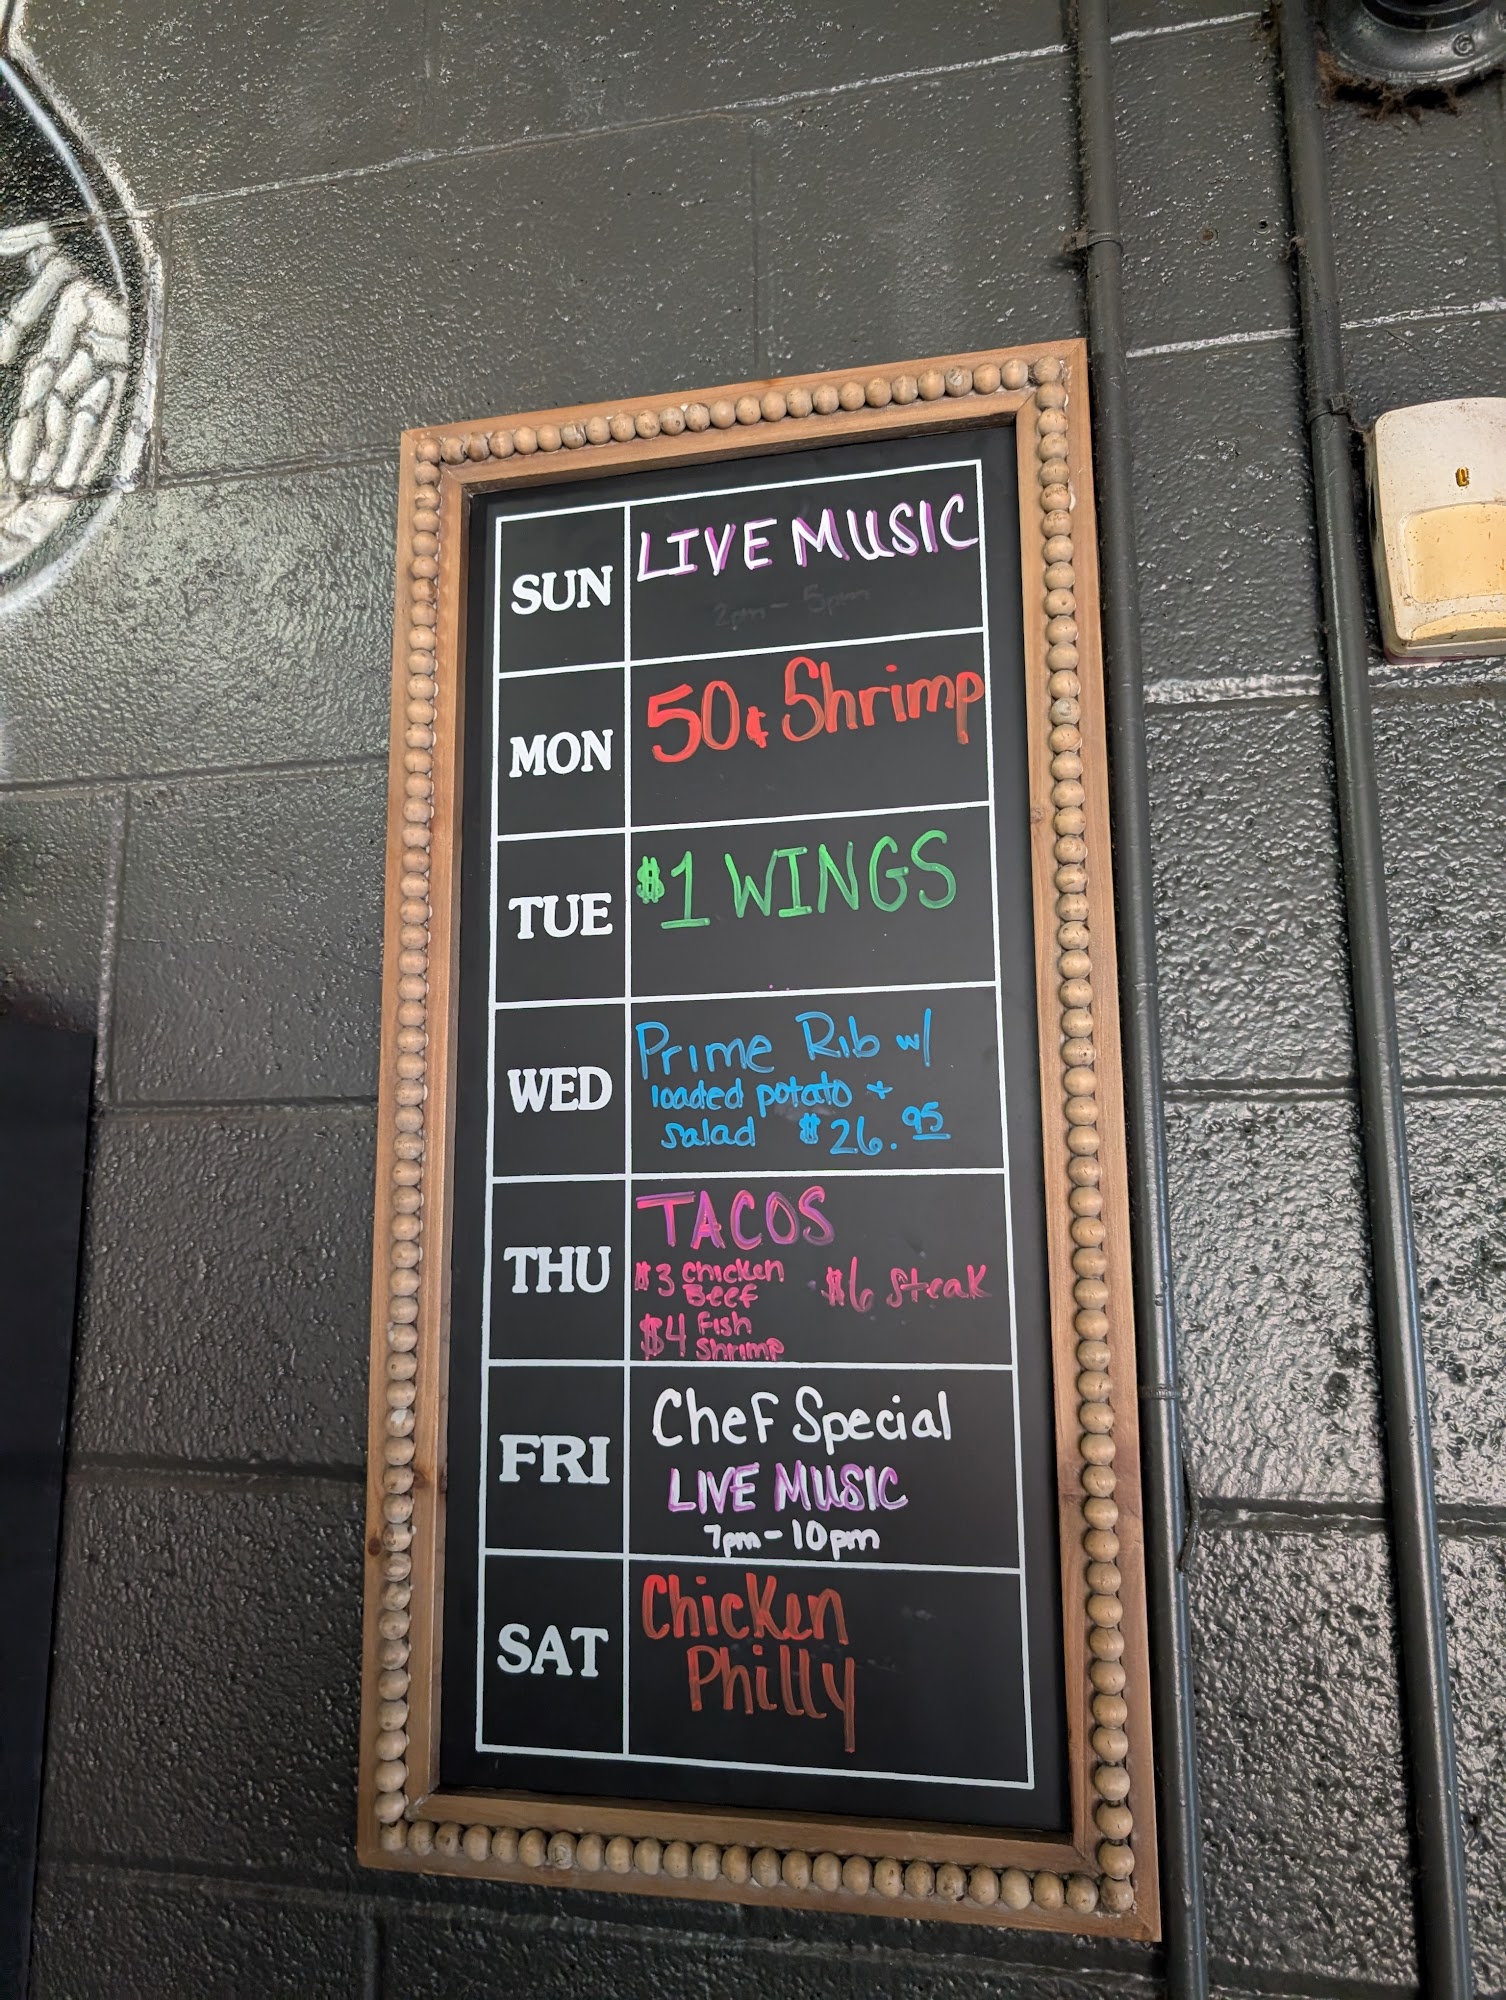 SUN
LIVE MUSIC
2pm - 5pm
MON
50¢ Shrimp
TUE
$1 WINGS
WED
Prime Rib w/
loaded potato +
salad $26.95
THU
TACOS
$3 Chicken
Beef
$6 Steak
$4 Fish
Shrimp
FRI
Chef Special
LIVE MUSIC
7pm - 10pm
SAT
Chicken
Philly